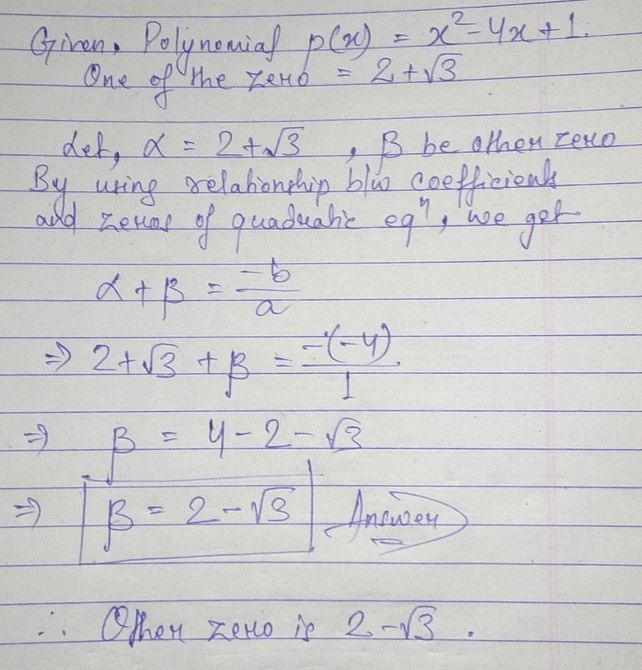 Given, Polynomial p(x) = x² - 4x + 1.
One of the zero = 2 + √3
Let, α = 2 + √3 , β be other zero
By using relationship b/w coefficients
and zeros of quadratic eqⁿ, we get
α + β = -b/a
⇒ 2 + √3 + β = -(-4)/1
⇒ β = 4 - 2 - √3
⇒ β = 2 - √3 Answer
∴ Other zero is 2 - √3 .